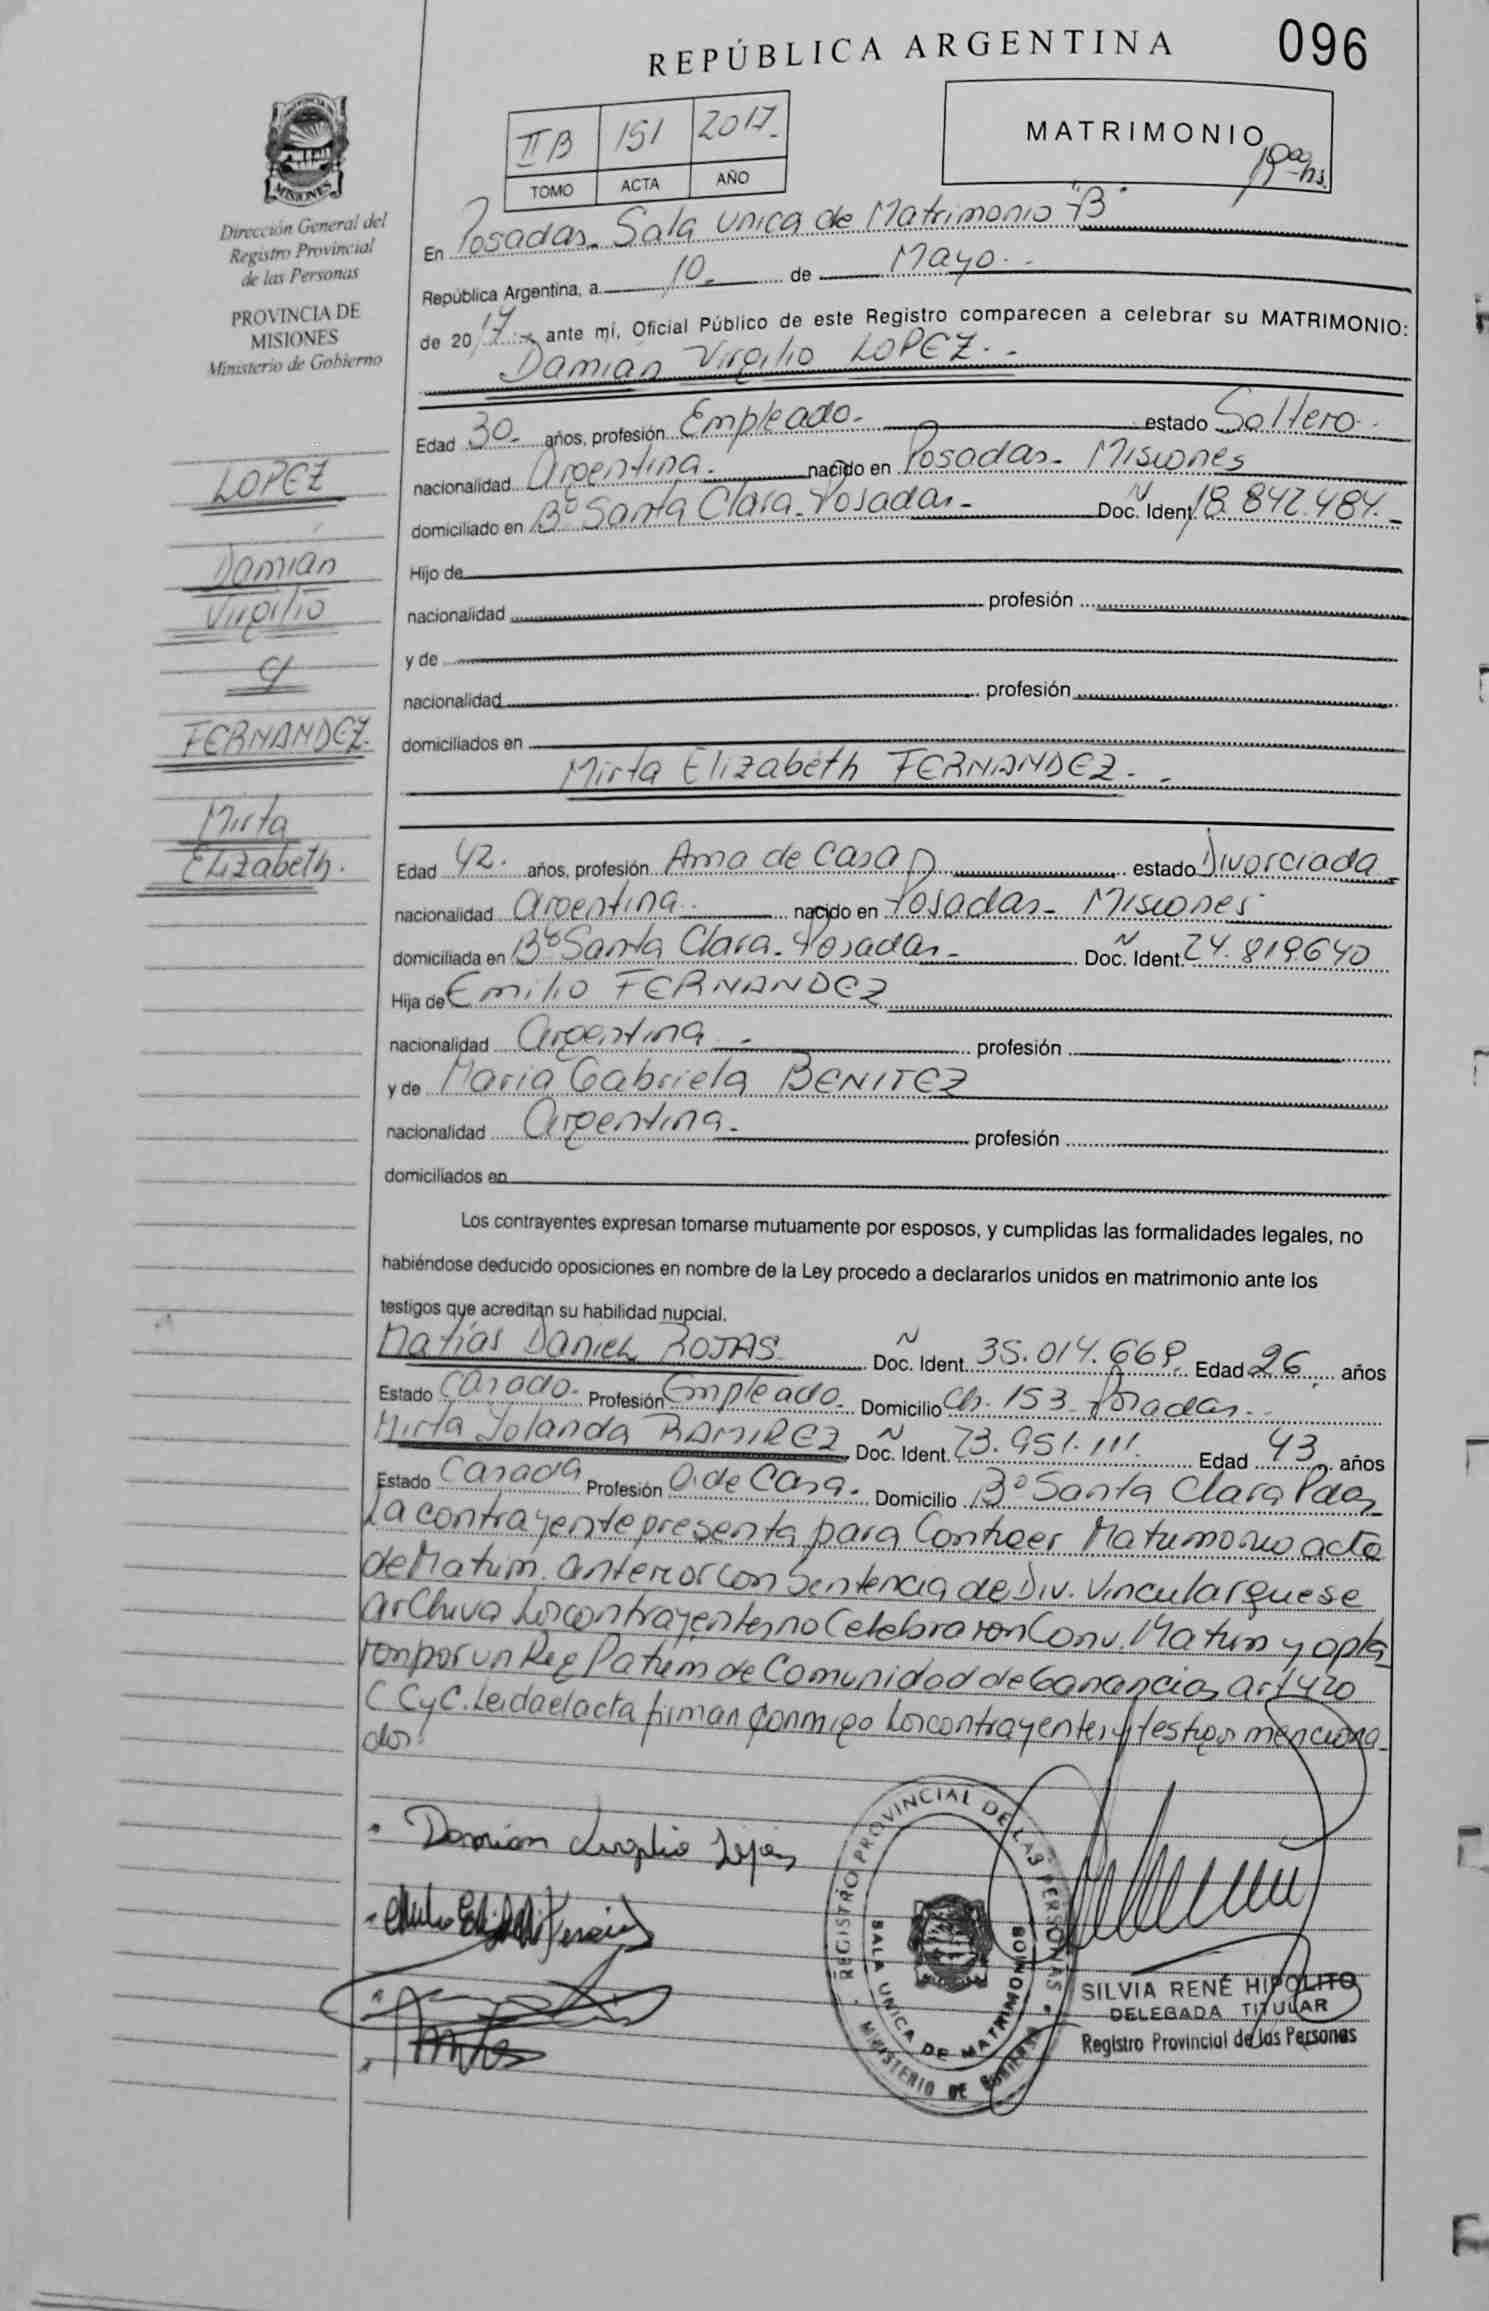 REPÚBLICA ARGENTINA
096
II B 151 2017.
TOMO ACTA AÑO
MATRIMONIO
hs.
PROVINCIA DE
MISIONES
Dirección General del
Registro Provincial
de las Personas
PROVINCIA DE
MISIONES
Ministerio de Gobierno
En Posadas. Sala Unica de Matrimonio "B"
República Argentina, a 10. de Mayo.
de 2017 ante mí, Oficial Público de este Registro comparecen a celebrar su MATRIMONIO:
Damián Virgilio LOPEZ.
Edad 30. años, profesión Empleado. estado Soltero.
nacionalidad Argentina. nacido en Posadas. Misiones
domiciliado en Bº Santa Clara. Posadas. Doc. Ident. 18.842.484.
Hijo de
nacionalidad profesión
y de
nacionalidad profesión
domiciliados en
LOPEZ
Damián
Virgilio
c/
FERNANDEZ.
Mirta
Elizabeth.
Mirta Elizabeth FERNANDEZ.
Edad 42. años, profesión Ama de Casa estado Divorciada
nacionalidad Argentina. nacido en Posadas. Misiones
domiciliada en Bº Santa Clara. Posadas. Doc. Ident. 24.819640
Hija de Emilio FERNANDEZ
nacionalidad Argentina. profesión
y de Maria Gabriela BENITEZ
nacionalidad Argentina. profesión
domiciliados en
Los contrayentes expresan tomarse mutuamente por esposos, y cumplidas las formalidades legales, no
habiéndose deducido oposiciones en nombre de la Ley procedo a declararlos unidos en matrimonio ante los
testigos que acreditan su habilidad nupcial.
Matías Daniel ROJAS Doc. Ident. 35.014.669. Edad 26 años
Estado Casado. Profesión Empleado. Domicilio Ch. 153 Posadas.
Mirta Yolanda RAMIREZ Doc. Ident. 23.951.111. Edad 43 años
Estado Casada Profesión A. de Casa. Domicilio Bº Santa Clara Pdas
La contrayente presenta para Contraer Matrimonio acta
de Matrim. anterior con Sentencia de Div. Vincular que se
archiva Los contrayentes no Celebraron Conv. Matrim y opta
ron por un Reg Patrim de Comunidad de Ganancias art 420
C CyC. Leida el acta firman conmigo los contrayentes y testigos menciona
dos.
Damian Virgilio Lopez
REGISTRO PROVINCIAL DE LAS PERSONAS
SALA UNICA DE MATRIMONIOS
MINISTERIO DE GOBIERNO
SILVIA RENÉ HIPOLITO
DELEGADA TITULAR
Registro Provincial de las Personas